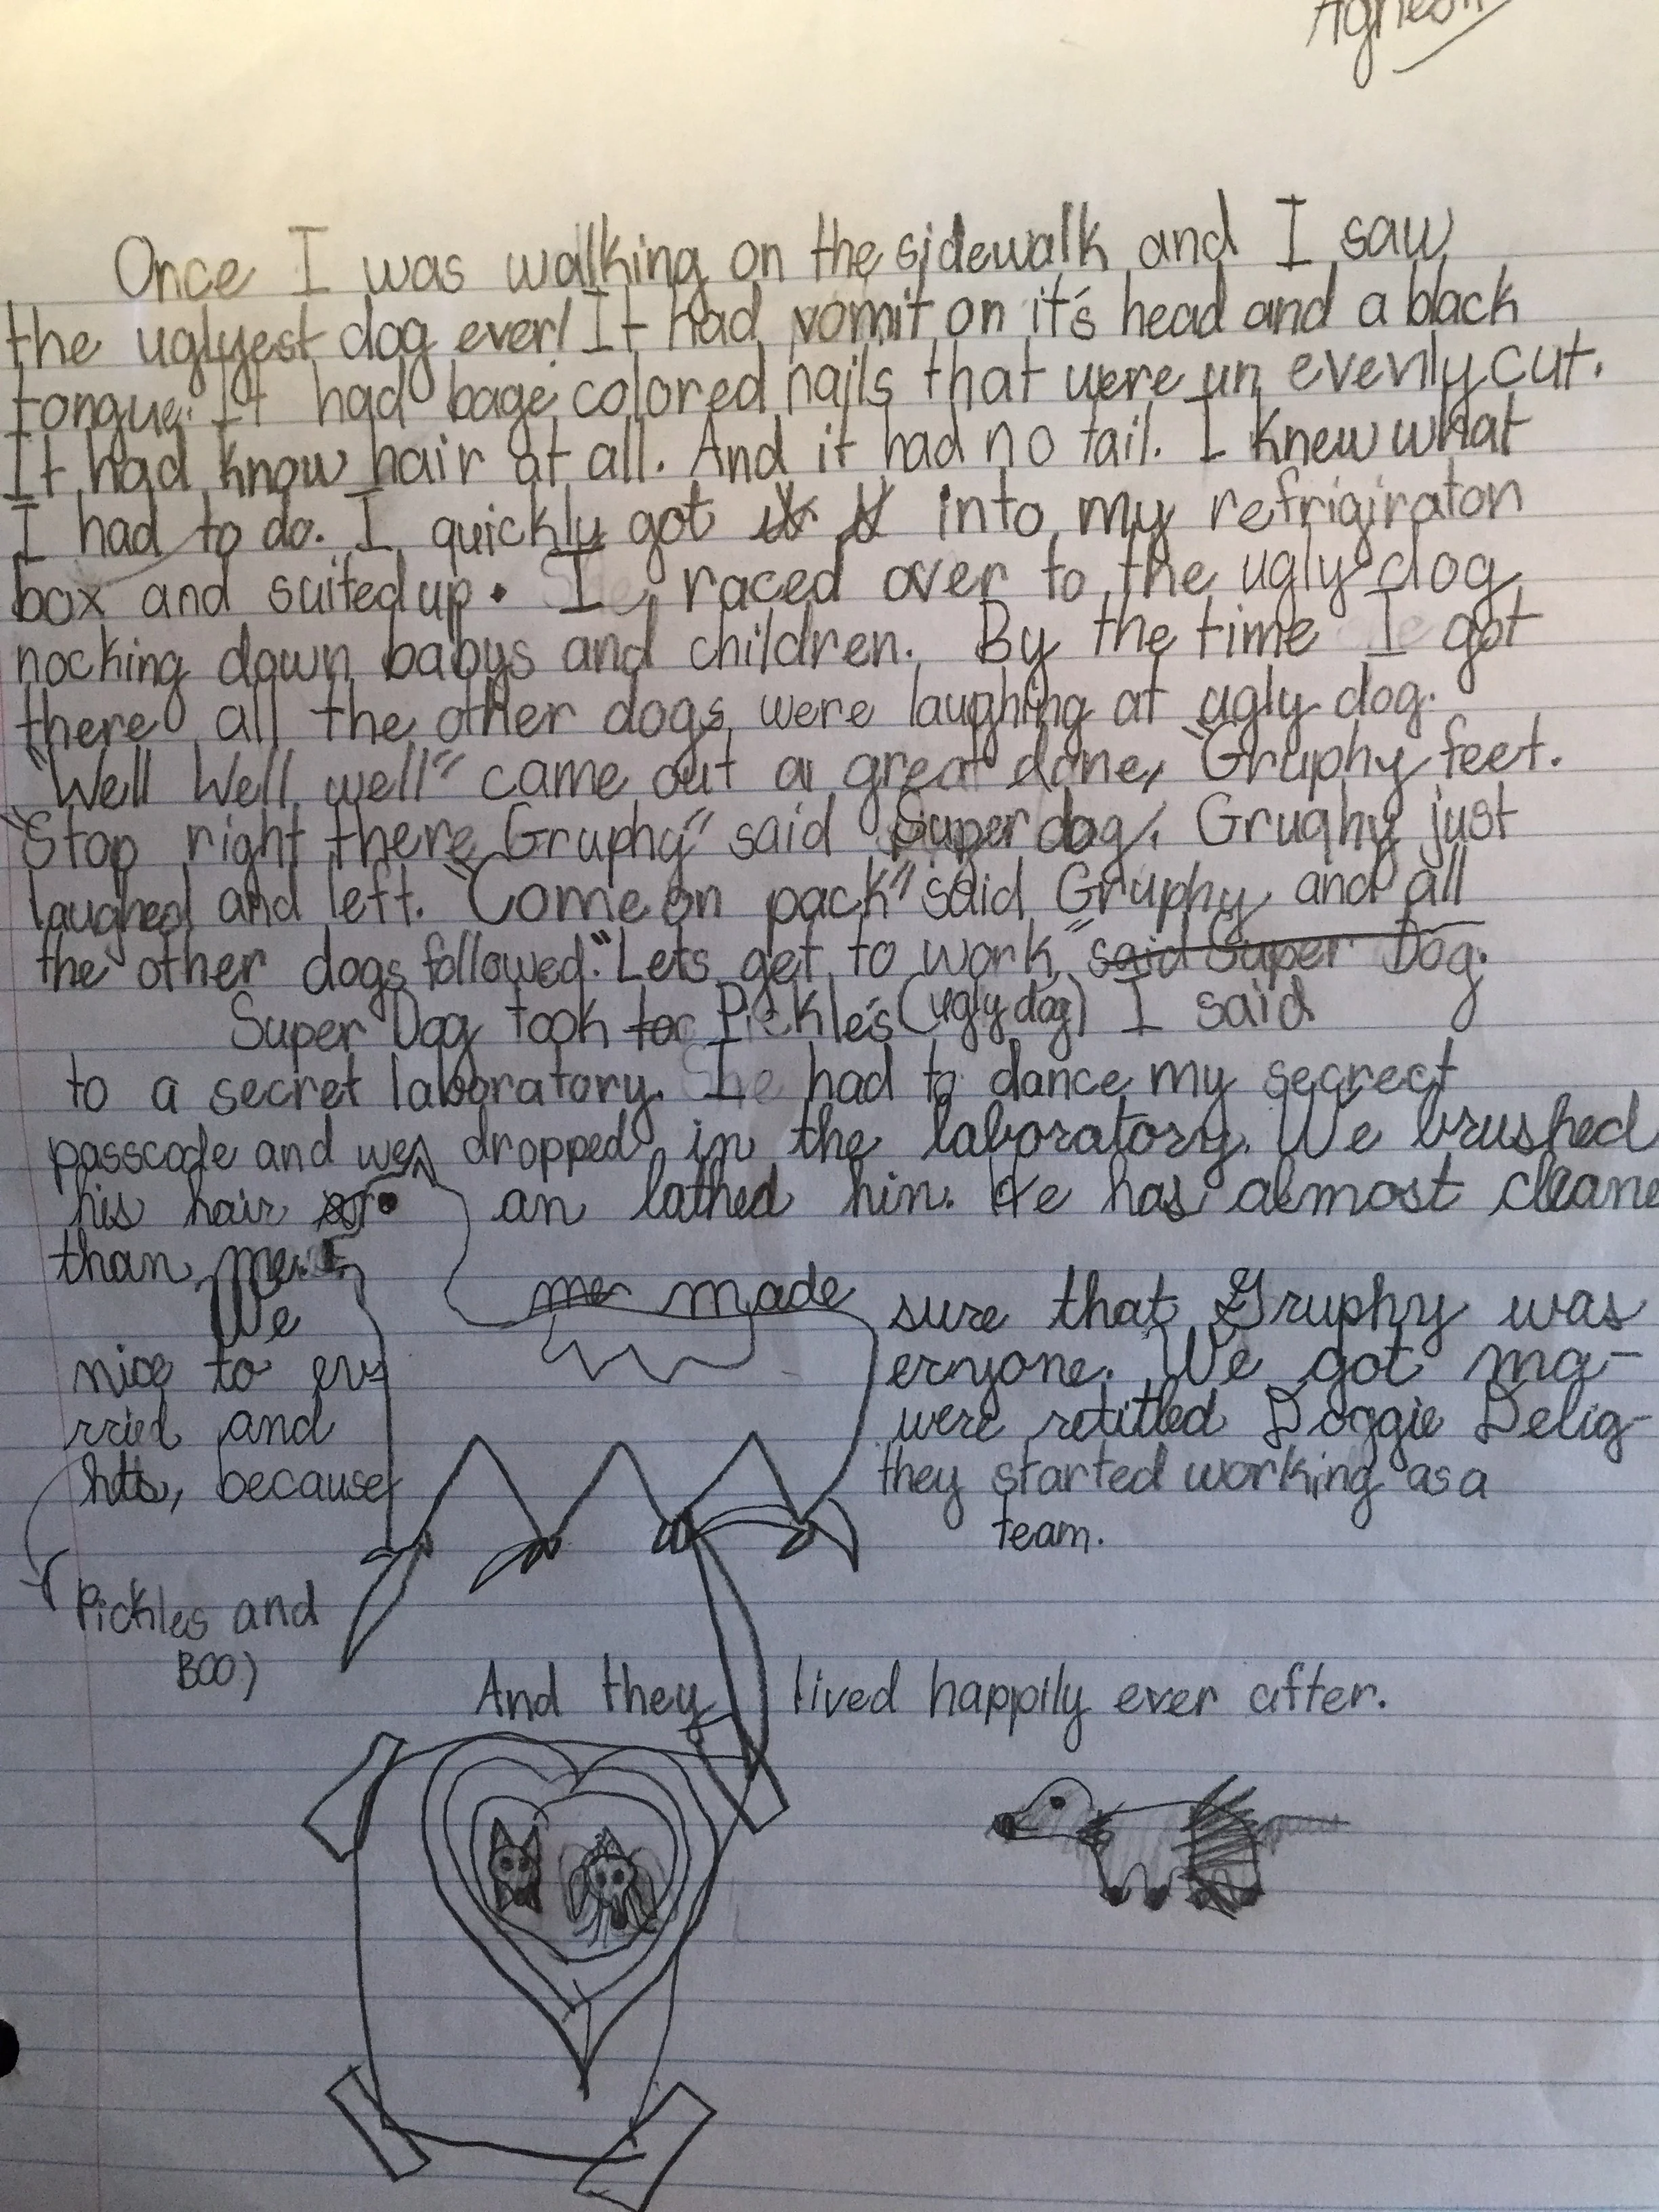 Once I was walking on the sidewalk and I saw
the uglyest dog ever! It had vomit on it's head and a black
tongue. It had bage colored nails that were un evenly cut.
It had know hair at all. And it had no tail. I knew what
I had to do. I quickly got into my refrigiraton
box and suited up. I raced over to the ugly dog
nocking down babys and children. By the time I got
there all the other dogs were laughing at ugly dog.
"Well Well well" came out a great dane, "Gruphy feet.
"Stop right there Gruphy" said Super dog. Grughy just
laughed and left. "Come on pack" said Gruphy and all
the other dogs followed. "Lets get to work" said Super Dog.
Super Dog took for Pickle's (ugly dog) I said
to a secret laboratory. I had to dance my secrect
passcode and we dropped in the laboratory. We brushed
his hair an bathed him. He has almost cleane
than me.
We me made sure that Gruphy was
nice to everyone. We got ma-
rried and were retitled Doggie Delig-
hts, because they started working as a
team.
Pickles and
Boo)
And they lived happily ever after.